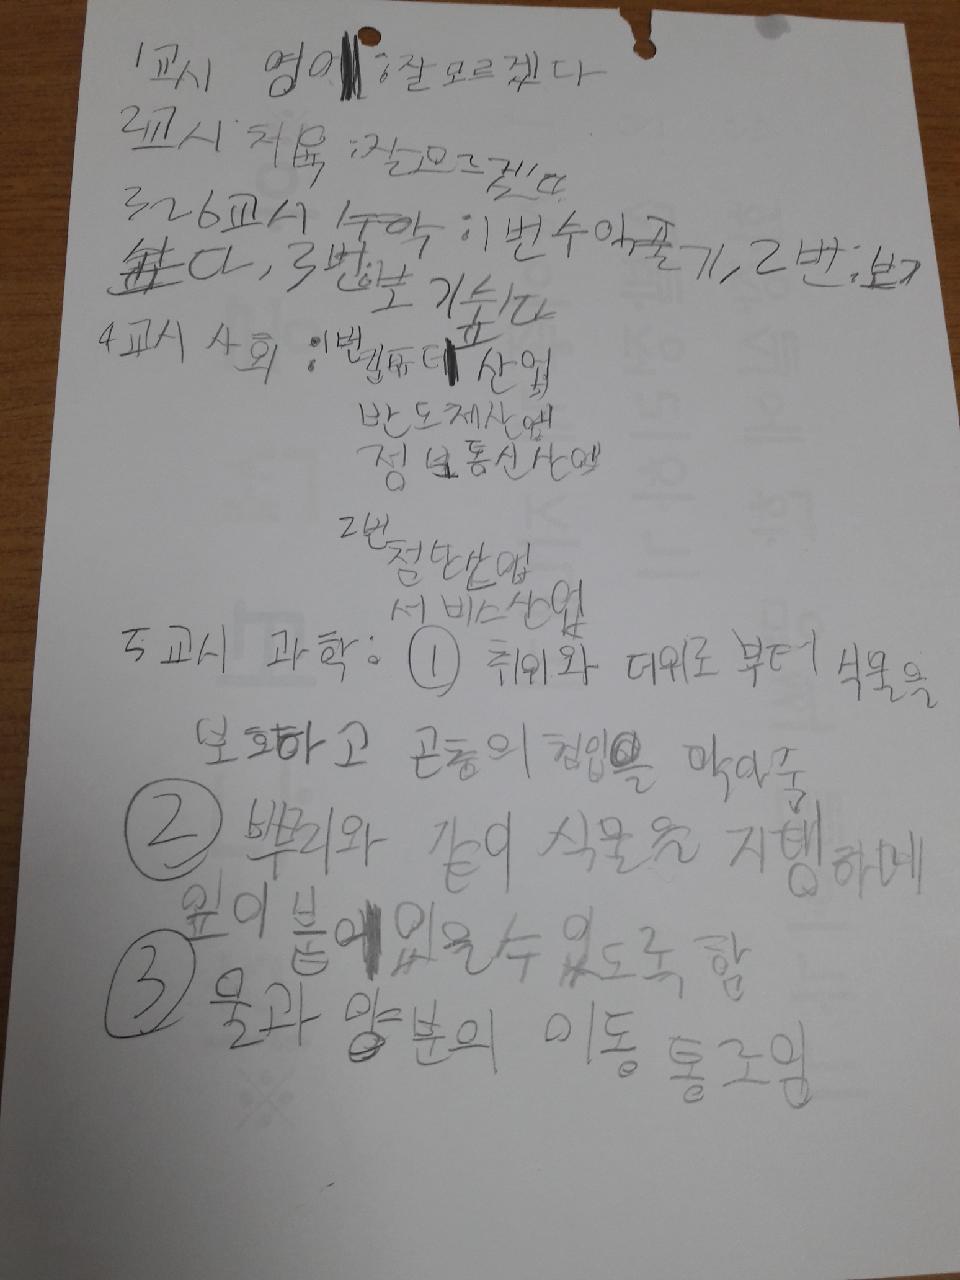 1교시 영어 :잘모르겠다
2교시 체육 :잘모르겠다
3교시 수학 :1번수학풀기, 2번:보기
쉽다, 3번:보기쉽다
4교시 사회 :1번 산업
반도체산업
정보통신산업
2번
첨단산업
서비스산업
5교시 과학: ① 취위와 더위로 부터 식물을
보호하고 곤충의 침입을 막아줌
② 뿌리와 같이 식물을 지탱하네
잎이 있을수있도록 함
③ 물과 양분의 이동 통로임